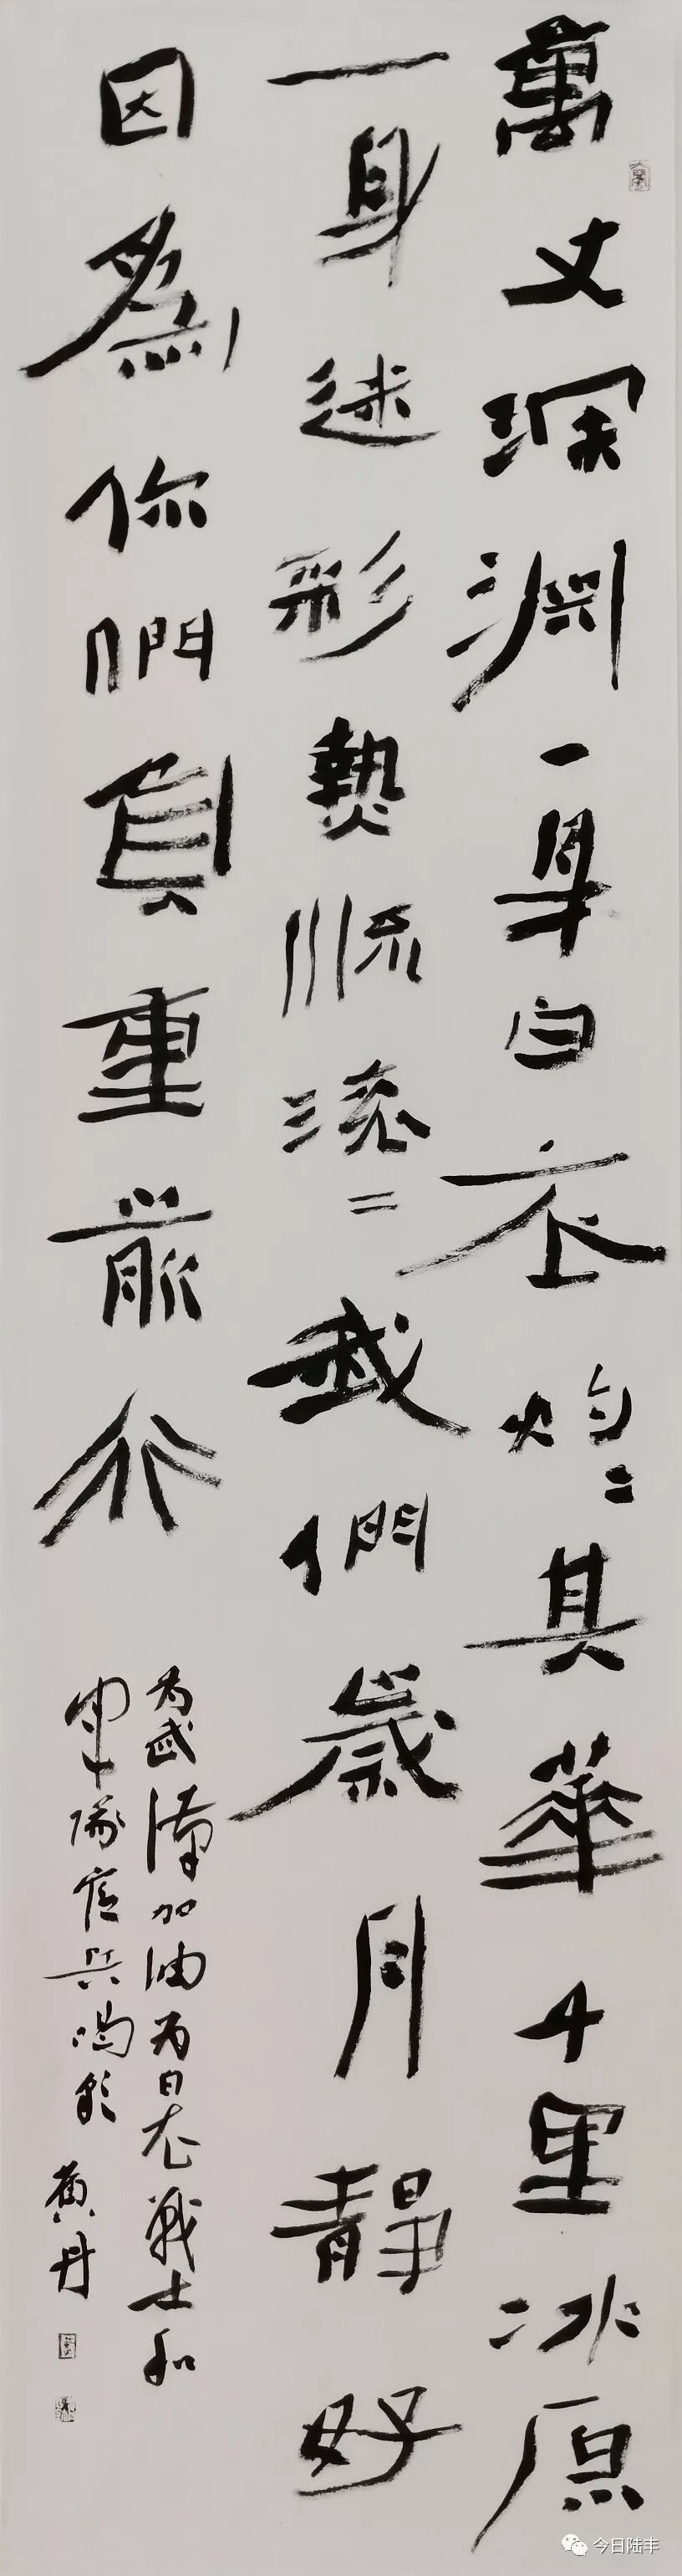 萬丈深淵一身白衣灼〻其華千里冰原
一身迷彩熱血流〻我們歲月靜好
因為你們負重前行
为武漢加油为白衣戰士和
軍隊官兵喝彩 黄丹
今日陆丰